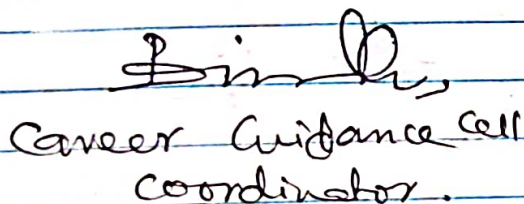 Career Guidance Cell
Coordinator.